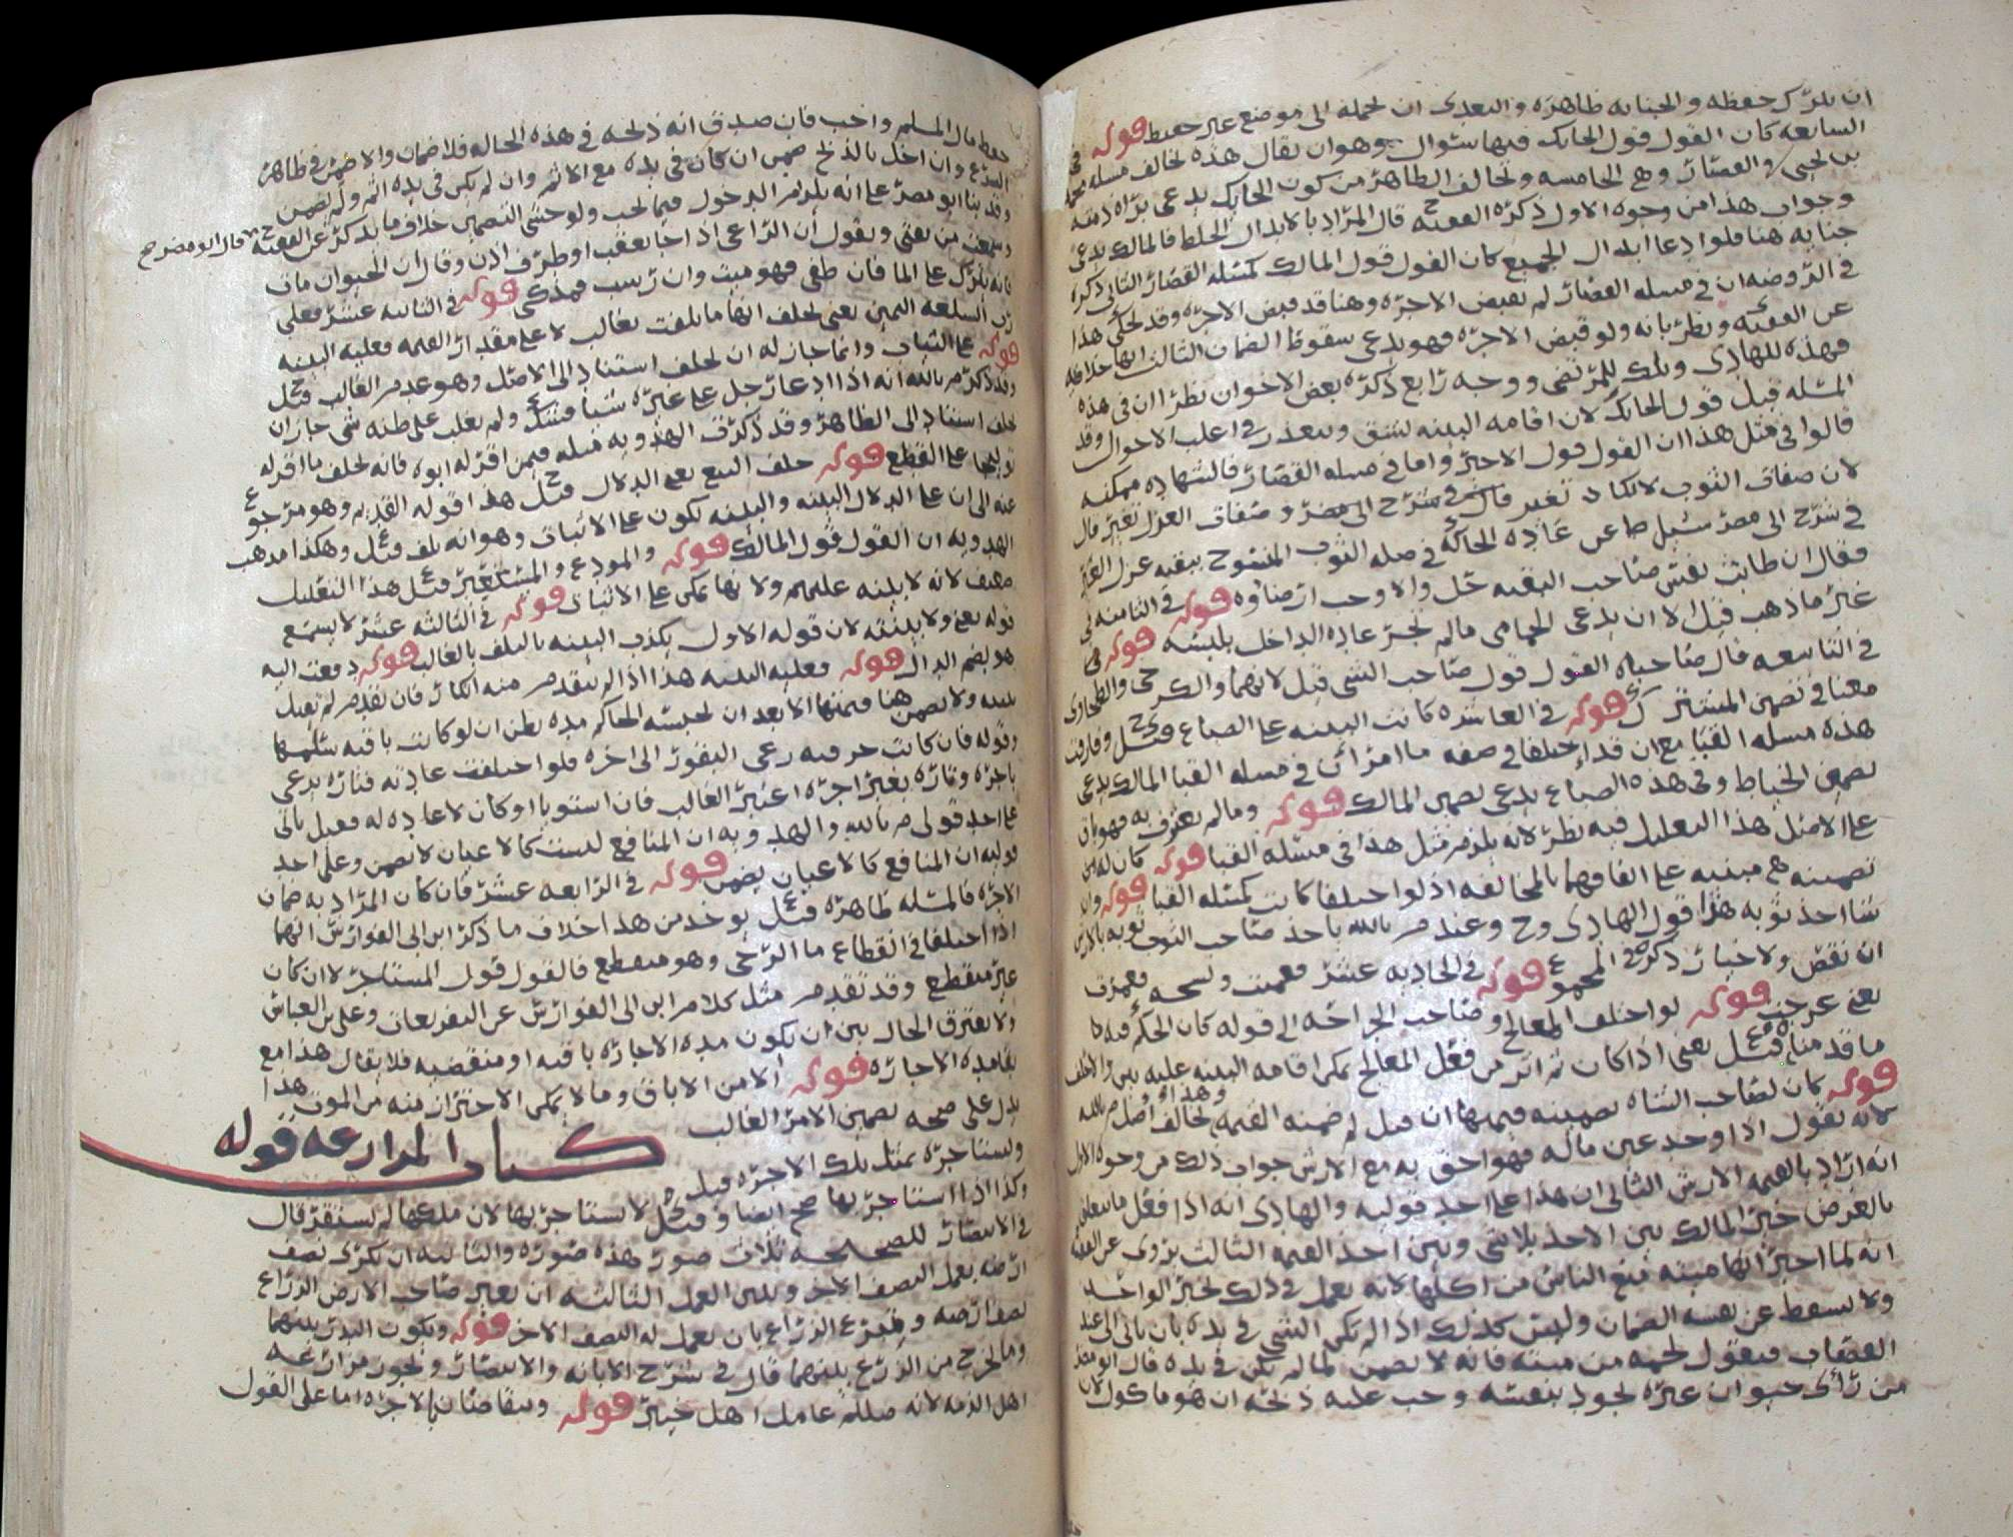 ان يترك حفظه والجنايه ظاهره والتعدي ان يحمله الى موضع غير حفيظ قوله في
السابعه كان القول قول الحايك فيها سؤال وهو ان يقال هذه تخالف مسله
والقصار وهي الخامسه وتخالف الظاهر من كون الحايك يدعي براه ذمته
وجواب هذا من وجوه الاول ذكره الفقيه ح قال المراد بالابدال الخلط فالمالك يدعي
جنايه هنا فلو ادعا ابدال الجميع كان القول قول المالك كمسله القصار الثاني ذكره
في الروضه ان في مسله القصار لم يقبض الاجره وهنا قد قبض الاجره وقد يحكى هذا
عن الفقيه ونظر بانه ولو قبض الاجره فهو يدعي سقوط الضمان الثالث انها خلافيه
فهذه للهادي وتلك للمرتضى ووجه رابع ذكره بعض الاخوان نظرا ان في هذه
المسله قبل قول الحايك لان اقامه البينه تشق وتتعذر في اغلب الاحوال وقد
قالوا في مثل هذا ان القول قول الاجير واما في مسله القصار فالشهاده ممكنه
لان صفات الثوب لا تكاد تتغير قال في شرح ابي مضر وصفات الغزل تتغير قال
في شرح ابي مضر سئل ص عن عاده الحاكه في صله الثوب المنسوج ببقيه غزل الغير
فقال ان طابت نفس صاحب البقيه حل والا وجب ارضاوه قوله في الثامنه
غير ما ذهب قيل الا ان يدعي الحمامي ما لم تجر عاده الداخل بلبسه قوله
في التاسعه قال صاحباه القول قول صاحب الشي قيل لانهما والكرخي والطحاوي
معنا في تضمين المشترك قوله في العاشره كانت البينه على الصباغ قيل وفارقت
هذه مسله القبا مع ان قد اختلفا في صفه ما امر ان في مسله القبا المالك يدعي
تضمين الخياط وفي هذه الصباغ يدعي تضمين المالك قوله وما لم يعترف به فهو باق
على الاصل هذا التعليل فيه نظر لانه يلزم مثل هذا في مسله القبا قوله كان له
تضمينه هي مبنيه على اتفاقهما بالمخالفه اذ لو اختلفا كانت كمسله القبا قوله وان
شا اخذ ثوبه هذا قول الهادي وح وعند م بالله ياخذ صاحب الثوب ثوبه بالارش
ان نقص ولا خيار ذكره في المجموع قوله في الحاديه عشر فعميت
يعني عن جنايه قوله لو اختلف المعالج وصاحب الجراحه الى قوله كان الحكم فيه كما
ما قدمنا قيل يعني اذا كان ثم اثر من فعل المعالج يمكن اقامه البينه عليه
قوله كان لصاحب الشاه تضمينه قيمتها ان قيل لم ضمنه القيمه وهذا يخالف اصل م بالله
لانه يقول اذا وجد عين ماله فهو احق به مع الارش جواب ذلك من وجوه الاول
انه اراد بالقيمه الارش الثاني ان هذا على احد قوليه والهادي انه اذا فعل
بالغرض خير المالك بين الاخذ بلا شي وبين اخذ القيمه الثالث يروى عن الفقيه
انه لما اخبر انها ميته منع الناس من اكلها لانه يعمل في ذلك بخبر الواحد
ولا يسقط عن نفسه الضمان وليس كذلك اذا لم يكن الشي في يده بان ياتي الى عند
القصاب فيقول لحمه من ميته فانه لا يضمن لما لم يكن في يده قال ابو مضر
من راى حيوان غيره يجود بنفسه وجب عليه ذبحه ان هو ماكول لان
حفظ مال المسلم واجب فان صدق انه ذبحه في هذه الحاله فلا ضمان والا ضمن في ظاهر
الشرع وان اخل بالذبح ضمن ان كان في يده مع الاثم وان لم يكن في يده اثم ولم يضمن
وقد بنا ابو مضر على انه يلزم الدخول فيما يجب ولو خشي التضمين خلاف ما يذكر عن الفقيه ح قال ابو مضر صح
وسمعت من يفتي ويقول ان الراعي اذا جا بعقب او طرف اذن وقال ان الحيوان مات
فانه يترك على الما فان طفى فهو ميت وان رسب فمذكى قوله في الثانيه عشر فعلى
رب السلعه اليمين يعني يحلف انها ما بلغت بغالب لا على مقدار القيمه فعليه البينه
قوله على الثبات وانما جاز له ان يحلف استنادا الى الاصل وهو عدم الغالب قيل
وقد ذكر م بالله انه اذا ادعا رجل على غيره شيا فشك ولم يغلب على ظنه شي جاز ان
يحلف استنادا الى الظاهر وقد ذكرت الهدويه مسله فيمن اقر له ابوه فانه يحلف ما اقر له
توليجا على القطع قوله حلف البيع يعني الدلال قيل هذا قوله القديم وهو مرجوع
عنه الى ان على الدلال البينه والبينه تكون على الاثبات وهو انه تلف قيل وهكذا مذهب
الهدويه ان القول قول المالك قوله والمودع والمستعير قيل هذا التعليل
ضعيف لانه لا بينه عليهم ولانها تمكن على الاثبات قوله في الثالثه عشر لا يسمع
قوله يعني ولا بينته لان قوله الاول يكذب البينه بالتلف بالغالب قوله دفعت اليه
هو بضم الدال قوله فعليه البينه هذا اذا لم يتقدم منه انكار فان تقدم لم تقبل
بينته ولا يضمن هنا قيمتها الا بعد ان يحبسه الحاكم مده يظن ان لو كانت باقيه سلمها
وقوله فان كانت حرفته رعي البقور الى اخره فلو اختلفت عادته فتاره يرعى
باجره وتاره بغير اجره اعتبر الغالب فان استويا او كان لا عاده له فعلى ياتي
على احد قولي م بالله والهدويه ان المنافع ليست كالاعيان لا يضمن وعلى احد
قوليه ان المنافع كالاعيان يضمن قوله في الرابعه عشر فان كان المراد به ضمان
الاجره فالمسله ظاهره قيل يوخذ من هذا خلاف ما ذكر ابن ابي الفوارس انهما
اذا اختلفا في انقطاع ما الرحى وهو منقطع فالقول قول المستاجر لا ان كان
غير منقطع وقد تقدم مثل كلام ابن ابي الفوارس عن التفريعات وعلي بن العباس
ولا يفترق الحال بين ان يكون مده الاجاره باقيه او منقضيه فلا يقال هذا مع
بقا مده الاجاره قوله الا من الاباق وما لا يمكن الاحتراز منه من الموت هذا
يدل على صحه تضمين الامر الغالب
كتاب المزارعه قوله
ويستاجره بمثل تلك الاجره قيل
وكذا اذا استاجر بها صح ايضا وقيل لا يستاجر بها لان ملكها لم يستقر قال
في الانتصار للصحيحه ثلاث صور هذه صوره والثانيه ان يكري نصف
ارضه بعمل النصف الاخر وبين العمل الثالثه ان يعير صاحب الارض الزراع
نصف ارضه ويتبرع الزراع بان يعمل له النصف الاخر قوله ويكون البذر بينهما
وما يخرج من الزرع بينهما قال في شرح الابانه والانتصار وتجوز مزارعه
اهل الذمه لانه صللم عامل اهل خيبر قوله ويتقاصان بالاجره اما على القول